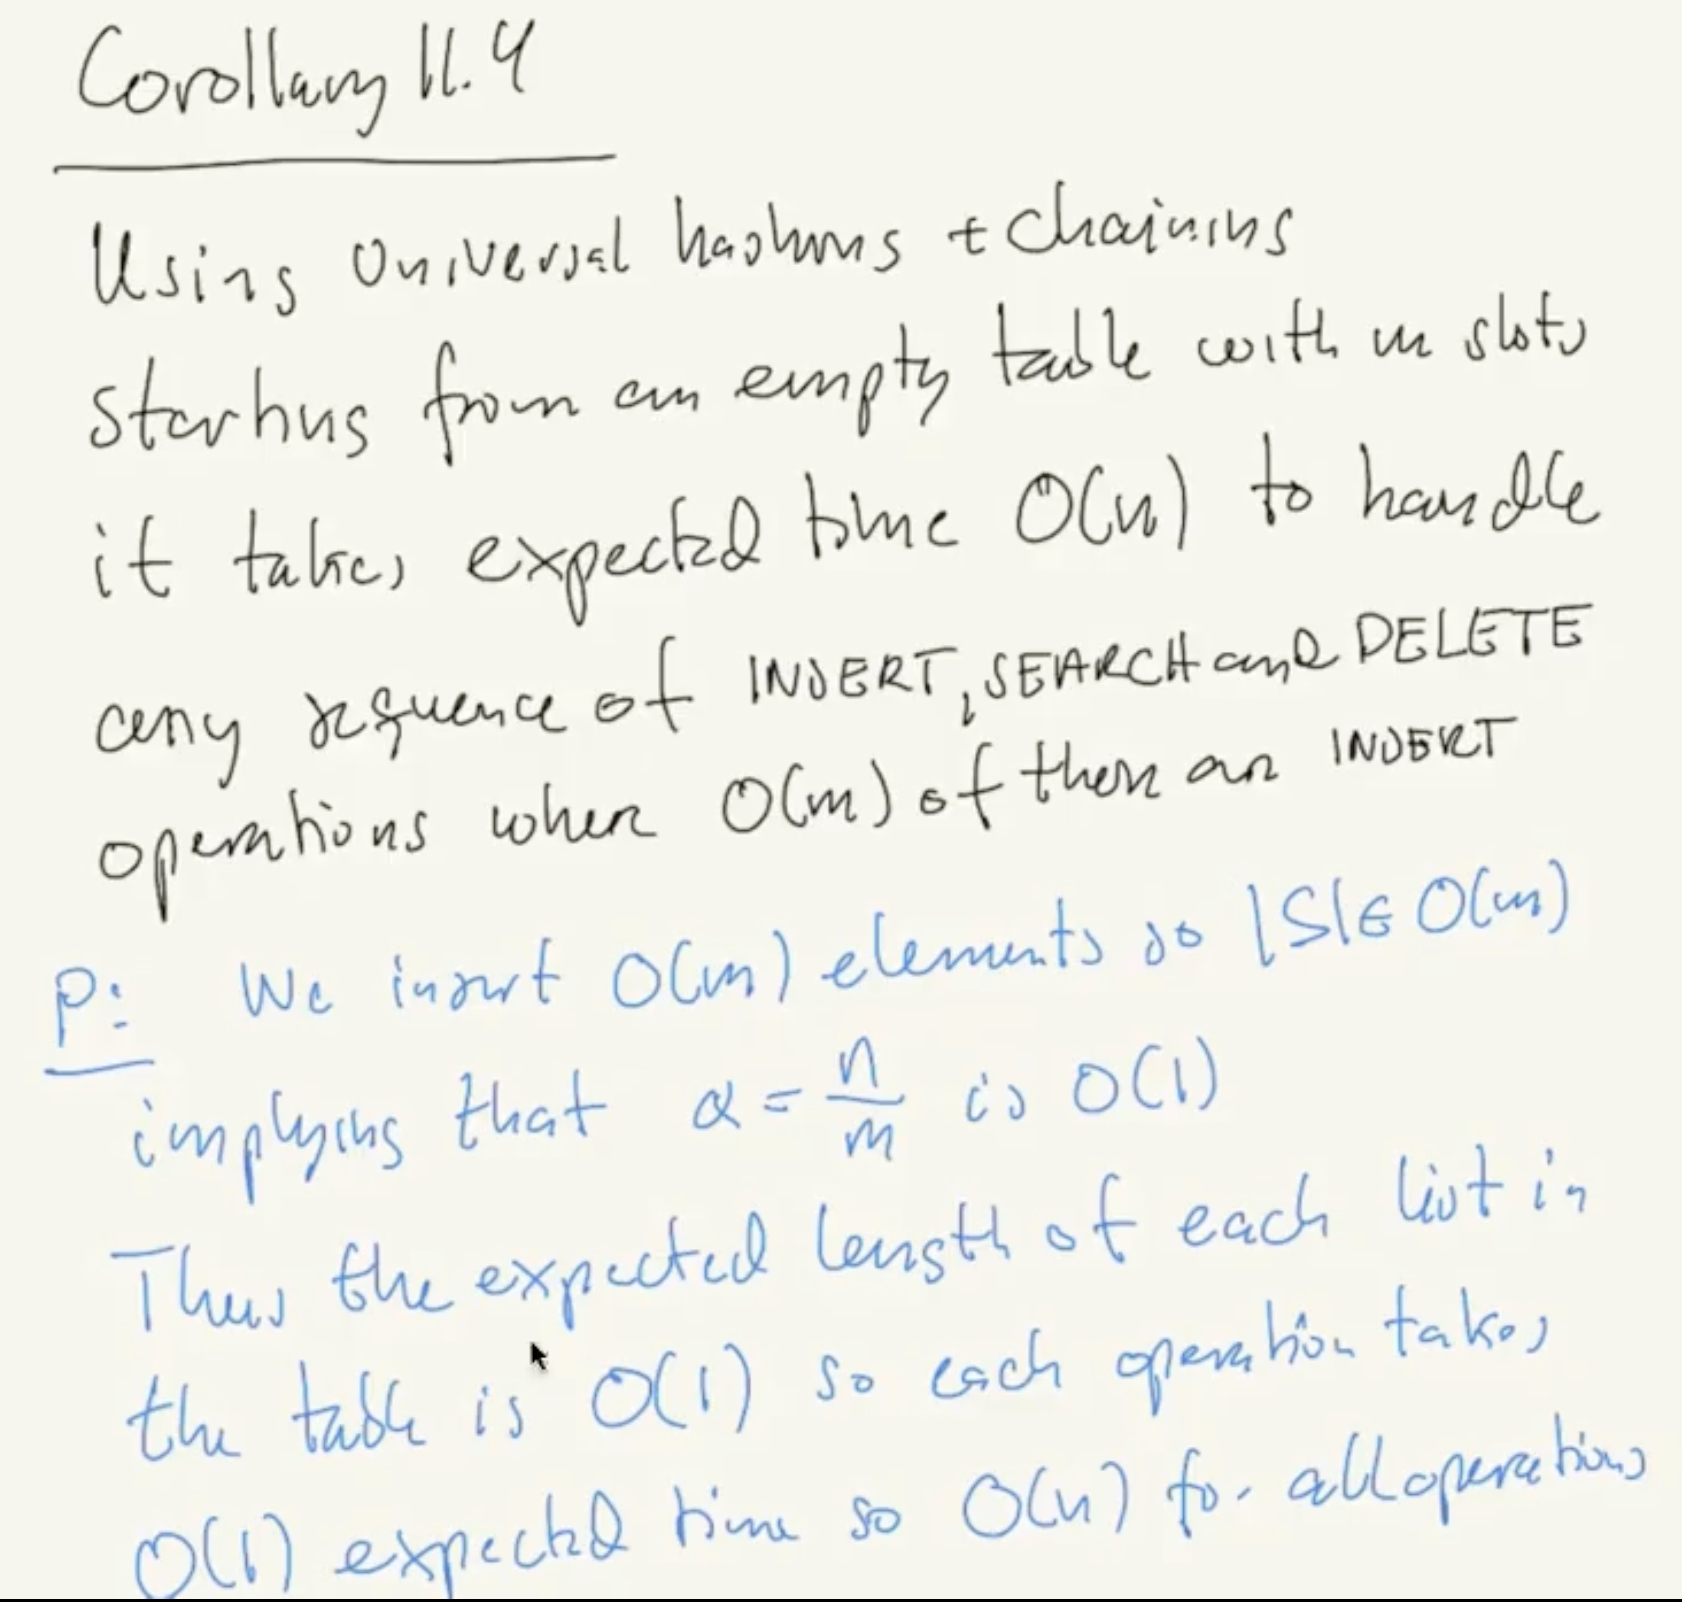 Corollary 11.4
Using Universal hashing + chaining
starting from an empty table with m slots
it takes expected time O(n) to handle
any sequence of INSERT, SEARCH and DELETE
operations where O(m) of them are INSERT
P: We insert O(m) elements so |S| ∈ O(m)
implying that α = n/m is O(1)
Thus the expected length of each list in
the table is O(1) so each operation takes
O(1) expected time so O(n) for all operations